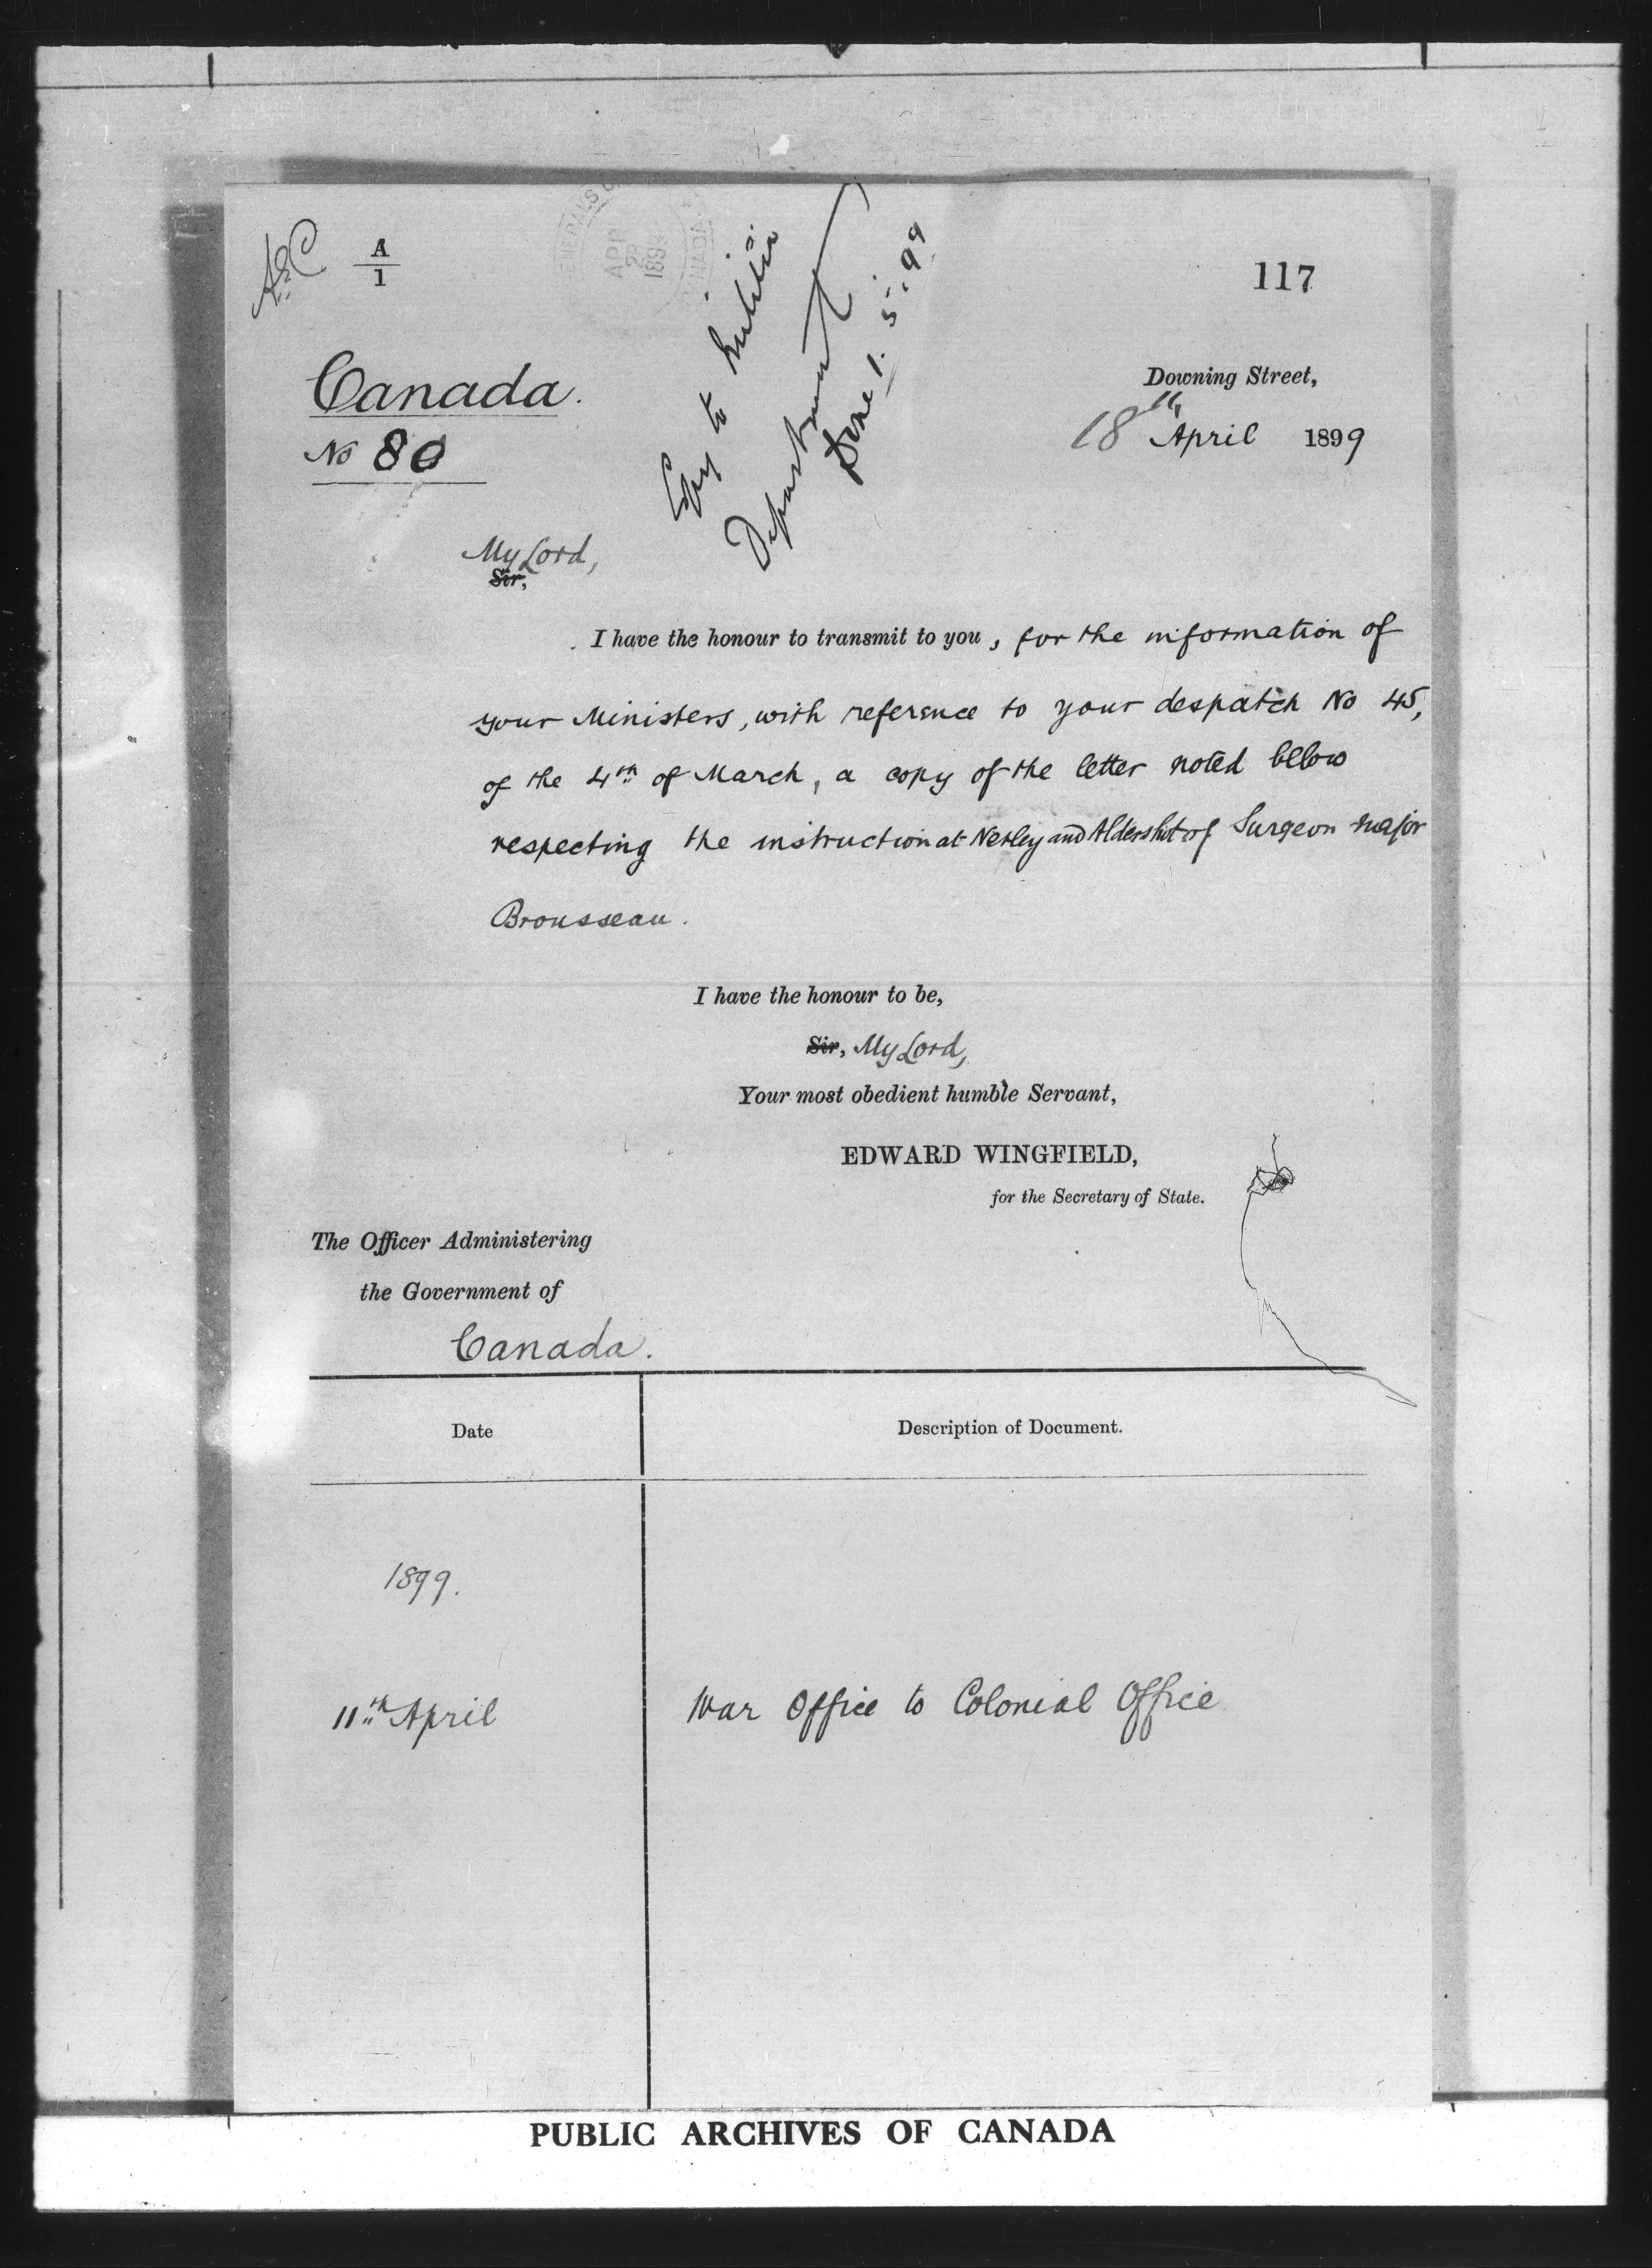 A
1
117
Canada.
No 80
Copy to Militia
Department
Done 1.5.99
APR
1899
Downing Street,
18th April 1899
My Lord,
Sir,
I have the honour to transmit to you, for the information of
your Ministers, with reference to your despatch No 45,
of the 4th of March, a copy of the letter noted below
respecting the instruction at Netley and Aldershot of Surgeon Major
Brousseau.
I have the honour to be,
Sir, My Lord,
Your most obedient humble Servant,
EDWARD WINGFIELD,
for the Secretary of State.
The Officer Administering
the Government of
Canada.
Date
Description of Document.
1899.
11th April
War Office to Colonial Office
PUBLIC ARCHIVES OF CANADA